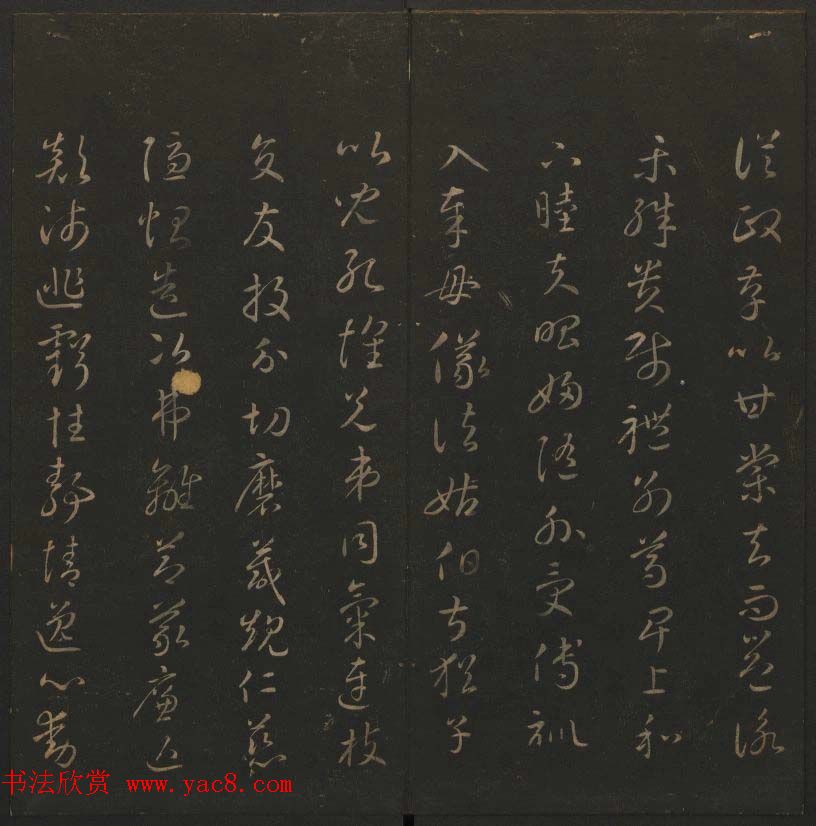 從政存以甘棠去而益詠
樂殊貴賤禮別尊卑上和
下睦夫唱婦隨外受傅訓
入奉母儀諸姑伯叔猶子
比兒孔懷兄弟同氣連枝
交友投分切磨箴規仁慈
隱惻造次弗離節義廉退
顛沛匪虧性靜情逸心動
书法欣赏 www.yac8.com